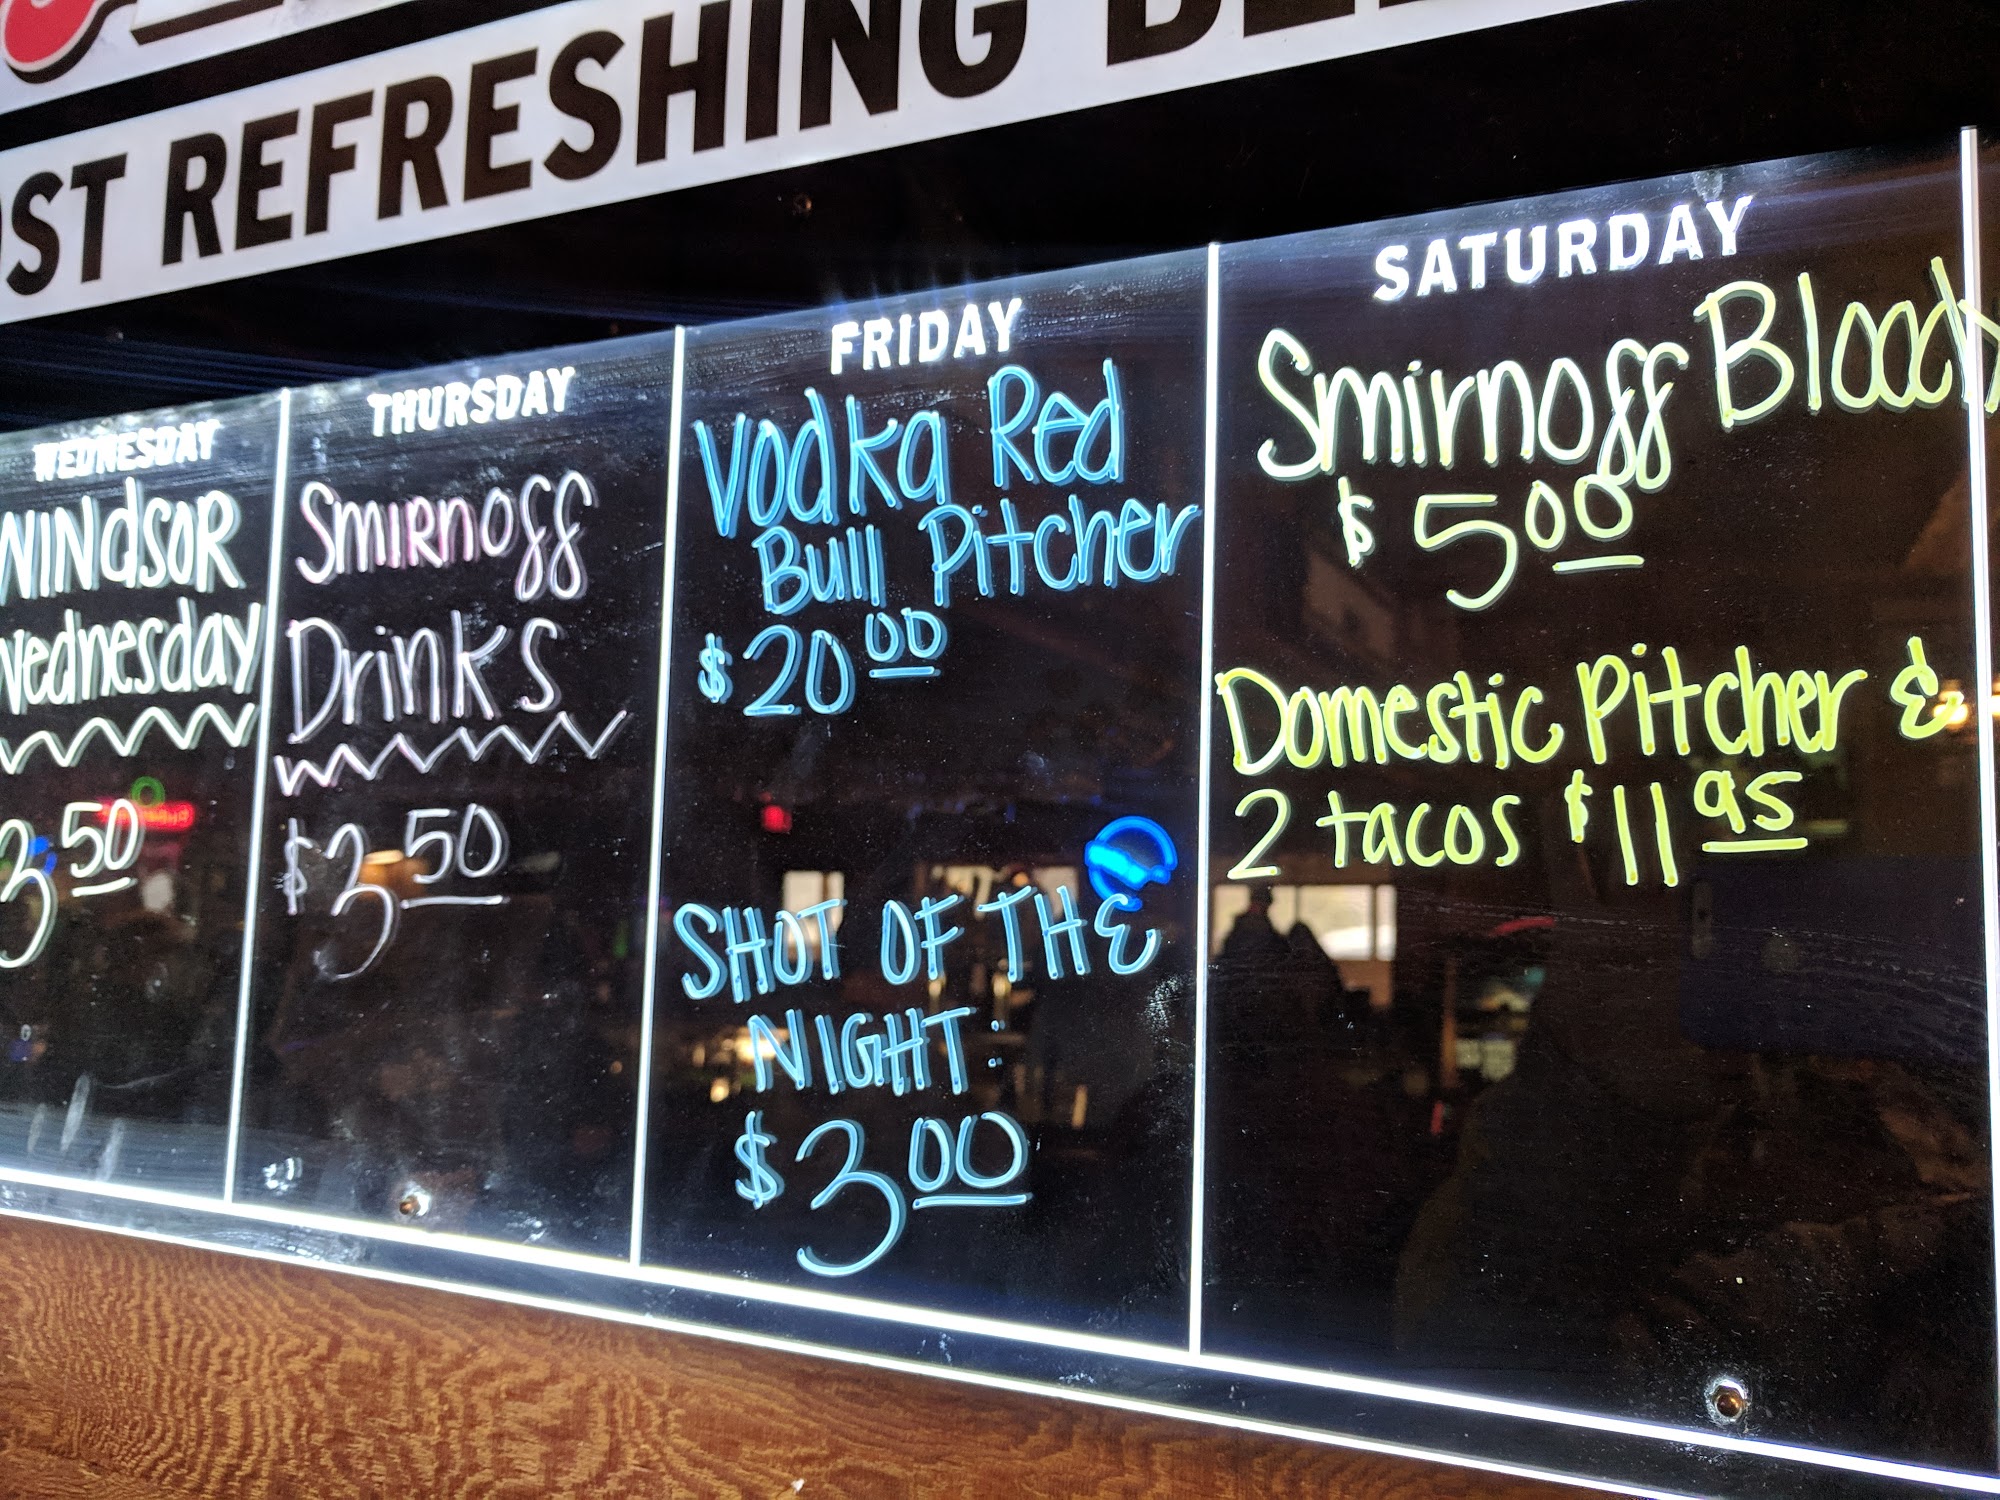 REFRESHING
WEDNESDAY
WINdSOR
Wednesday
3.50
THURSDAY
SmiRnoff
Drinks
$3.50
FRIDAY
Vodka Red
Bull Pitcher
$20.00
SHOT OF THE
NIGHT:
$3.00
SATURDAY
Smirnoff Bloody
$5.00
Domestic Pitcher &
2 tacos $11.95